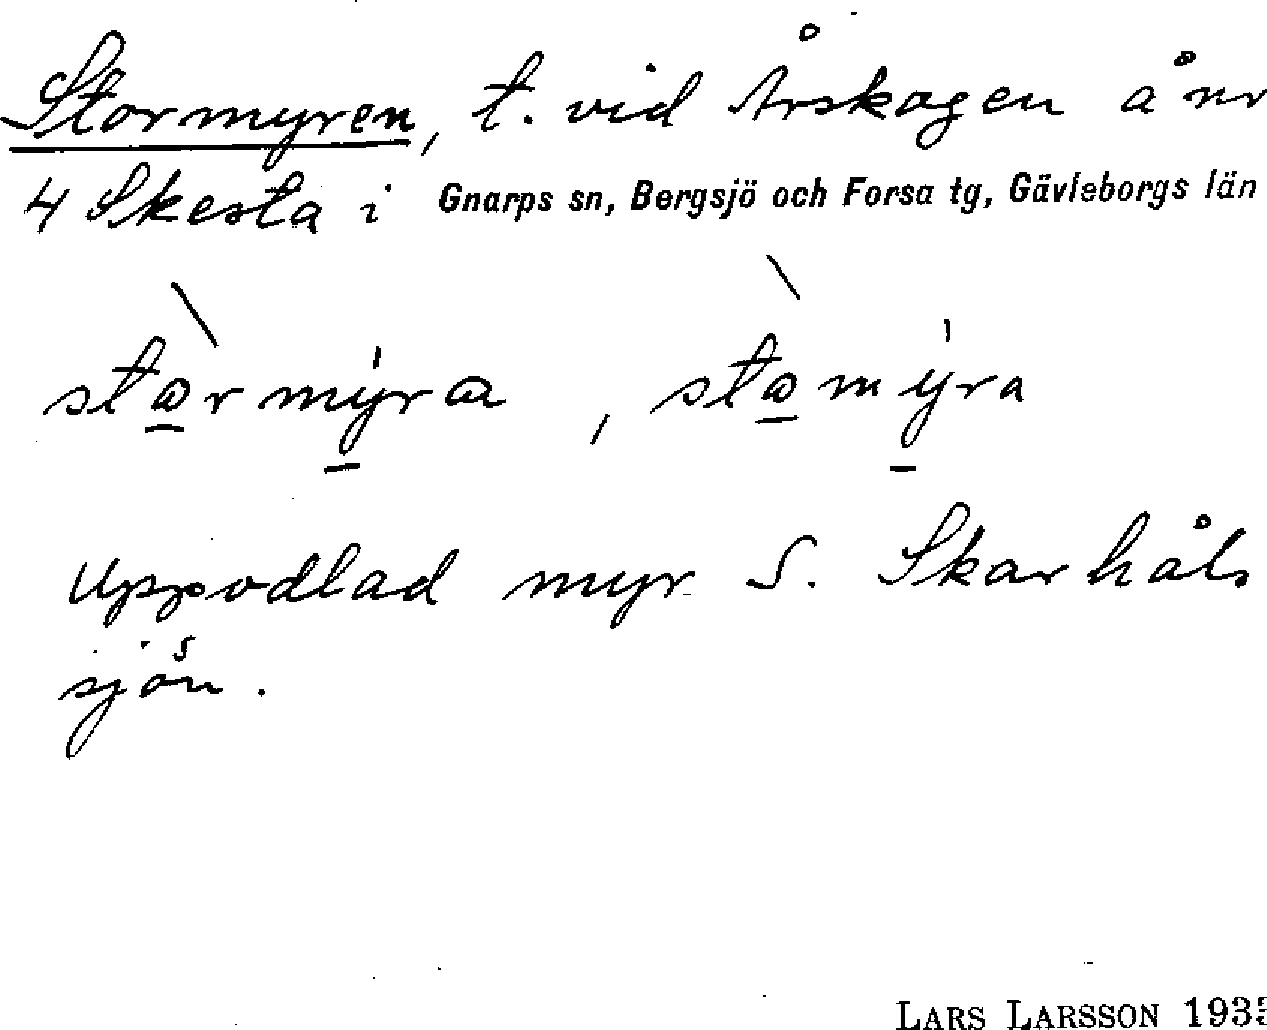 Stormyren, t. vid Årskogen å nr
4 Skesta i Gnarps sn, Bergsjö och Forsa tg, Gävleborgs län
starmyra, stamyra
Uppodlad myr S. Skarhåls
sjön.
LARS LARSSON 193